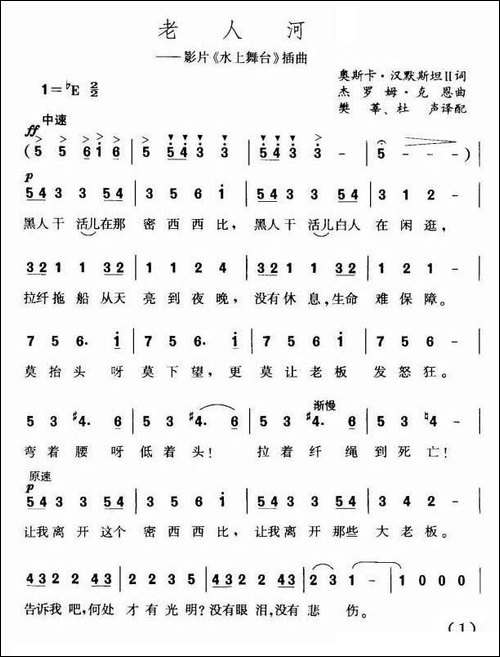 老人河
——影片《水上舞台》插曲
1=♭E 2/2
奥斯卡·汉默斯坦II词
杰罗姆·克恩曲
樊莘、杜声译配
中速
ff
( 5 5 6 i 6 | 5 4 3 4 3 | 5 4 3 4 3 | 5 - - | 5 - - )
p
5 4 3 3 5 4 | 3 5 6 i | 5 4 3 3 5 4 | 3 1 2 - |
黑人干活儿在那密西西比，黑人干活儿白人在闲逛，
3 2 1 1 3 2 | 1 1 2 4 | 3 2 1 1 3 2 1 | 1 2 1 - |
拉纤拖船从天亮到夜晚，没有休息，生命难保障。
7 5 6· i | 7 5 6· i | 7 5 6· i | 7 5 6 - |
莫抬头呀莫下望，更莫让老板发怒狂。
渐慢
5 3 #4· 6 | 5 3 #4· 6 | 5 3 #4· 6 | 5 3 ♮4 - |
弯着腰呀低着头！拉着纤绳到死亡！
原速
p
5 4 3 3 5 4 | 3 5 6 i | 5 4 3 3 5 4 | 3 5 6 - |
让我离开这个密西西比，让我离开那些大老板。
4 3 2 2 4 3 2 | 2 3 5 i | 4 3 2 2 4 3 2 | 2 3 1 - | 1 0 0 0
告诉我吧，何处才有光明？没有眼泪，没有悲伤。
(1)